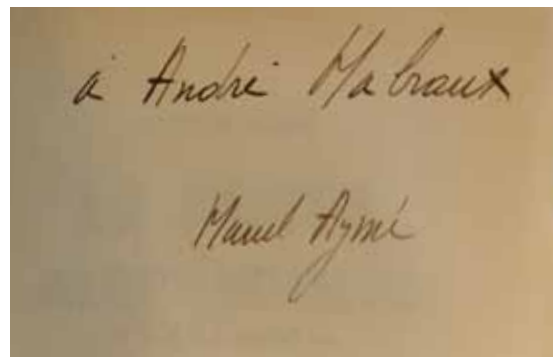 à André Malraux
Marcel Aymé